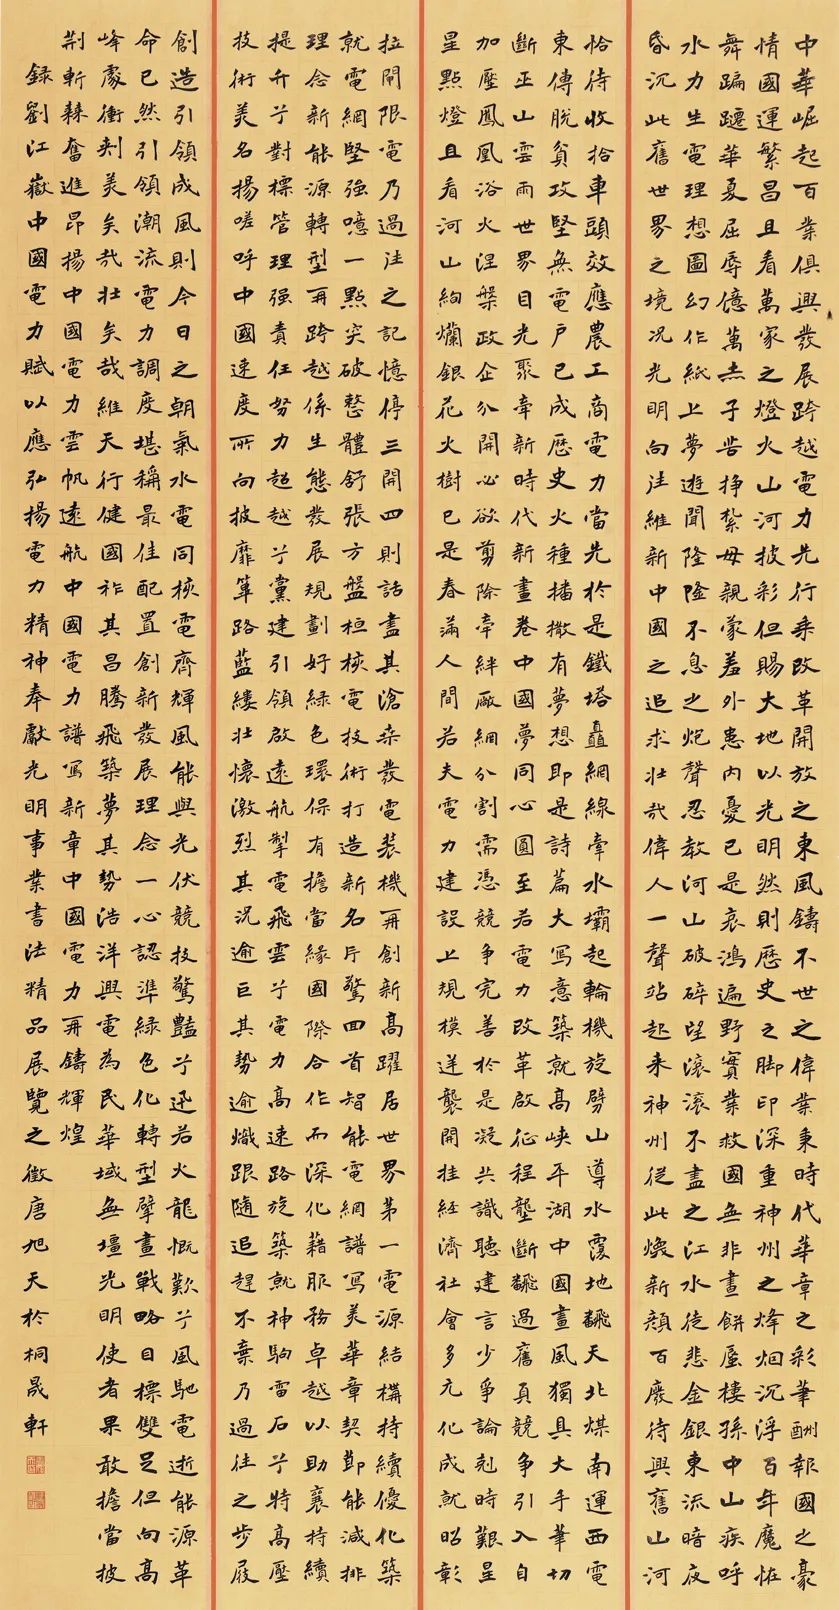 中華崛起百業俱興發展跨越電力先行乘改革開放之東風鑄不世之偉業秉時代華章之彩筆酬報國之豪
情國運繁昌且看萬家之燈火山河披彩但賜大地以光明然則歷史之脚印深重神州之烽烟沉浮百年魔怪
舞蹁躚華夏屈辱億萬赤子苦挣紮母親蒙羞外患内憂已是哀鴻遍野實業救國無非畫餅蜃樓孫中山疾呼
水力生電理想圖幻作紙上夢遊聞隆隆不息之炮聲忍教河山破碎望滾滾不盡之江水徒悲金銀東流暗夜
昏沉此舊世界之境况光明向往維新中國之追求壯哉偉人一聲站起来神州從此焕新顔百廢待興舊山河
恰待收拾車頭效應農工商電力當先於是鐵塔矗網線牽水壩起輪機旋劈山導水覆地翻天北煤南運西電
東傳脱貧攻堅無電户已成歷史火種播撒有夢想即是詩篇大寫意築就高峡平湖中國畫風獨具大手筆切
斷巫山雲雨世界目光聚牽新時代新畫卷中國夢同心圓至若電力改革啟征程壟斷翻過舊頁競争引入自
加壓鳳凰浴火涅槃政企分開心欲剪除牽絆廠網分割需憑競争完善於是凝共識聽建言少爭論剋時艱呈
星點燈且看河山絢爛銀花火樹已是春滿人間若夫電力建設上規模逆襲開挂經濟社會多元化成就昭彰
拉閘限電乃過往之記憶停三開四則話盡其滄桑發電装機再創新高躍居世界第一電源結構持續優化築
就電網堅强噫一點突破整體舒張方盤桓核電技術打造新名片驚回首智能電網譜寫美華章契節能減排
理念新能源轉型再跨越係生態發展規劃好綠色環保有擔當緣國際合作而深化藉服務卓越以助襄持續
提升兮對標管理强責任努力超越兮黨建引領啟遠航掣電飛雲兮電力高速路旋築就神駒雷石兮特高壓
技術美名揚嗟呼中國速度所向披靡篳路藍縷壯懷激烈其況逾巨其勢逾熾跟隨追趕不棄乃過往之步履
創造引領成風則今日之朝氣水電同核電齊輝風能與光伏競技驚豔兮迅若火龍慨歎兮風馳電逝能源革
命已然引領潮流電力調度堪稱最佳配置創新發展理念一心認準綠色化轉型擘畫戰略目標雙足但向高
峰處衝刺美矣哉壯矣哉維天行健國祚其昌騰飛築夢其勢浩洋興電為民華域無壃光明使者果敢擔當披
荆斬棘奮進昂揚中國電力雲帆遠航中國電力譜寫新章中國電力再鑄輝煌
録劉江嶽中國電力賦以應弘揚電力精神奉獻光明事業書法精品展覽之徵唐旭天於桐晟軒